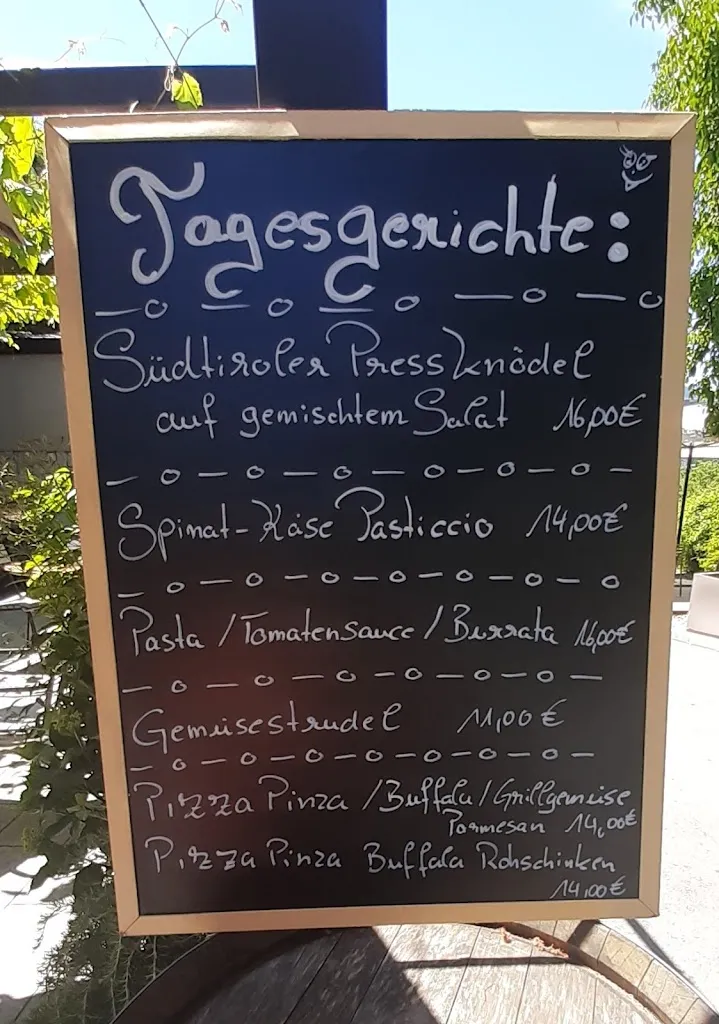 Tagesgerichte:
Südtiroler Pressknödel
auf gemischtem Salat 16,00€
Spinat-Käse Pasticcio 14,00€
Pasta /Tomatensauce/Burrata 16,00€
Gemüsestrudel 11,00€
Pizza Pinza /Buffala/Grillgemüse
Parmesan 14,00€
Pizza Pinza Buffala Rohschinken
14,00€